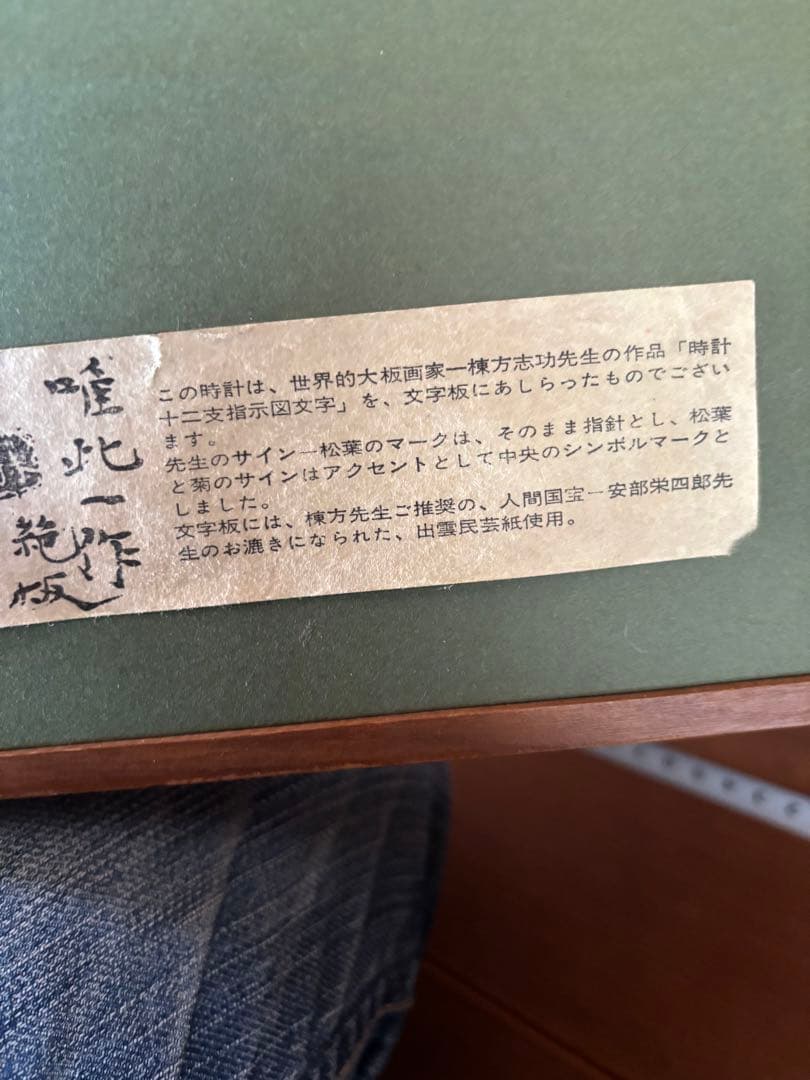 唯此一作
範板
この時計は、世界的大板画家―棟方志功先生の作品「時計
十二支指示図文字」を、文字板にあしらったものでござい
ます。
先生のサイン―松葉のマークは、そのまま指針とし、松葉
と菊のサインはアクセントとして中央のシンボルマークと
しました。
文字板には、棟方先生ご推奨の、人間国宝―安部栄四郎先
生のお漉きになられた、出雲民芸紙使用。